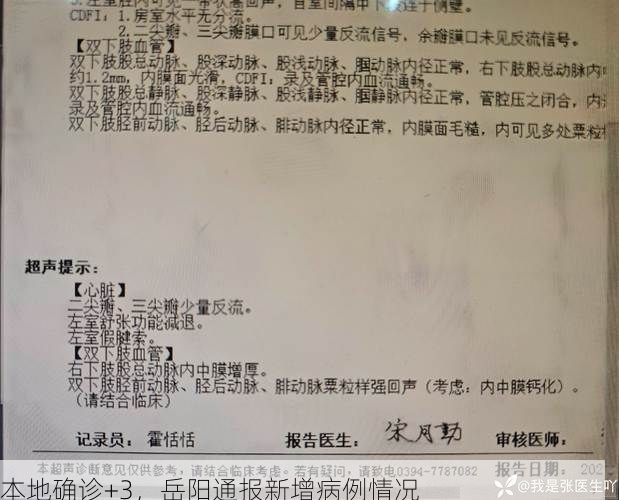 CDFI：1.房室水平无分流。
2.二尖瓣、三尖瓣膜口可见少量反流信号，余瓣膜口未见反流信号。
【双下肢血管】
双下肢股总动脉、股深动脉、股浅动脉、腘动脉内径正常，右下肢股总动脉内
约1.2mm，内膜面光滑，CDFI：录及管腔内血流通畅。
双下肢股总静脉、股深静脉、股浅静脉、腘静脉内径正常，管腔压之闭合，内
录及管腔内血流通畅。
双下肢胫前动脉、胫后动脉、腓动脉内径正常，内膜面毛糙，内可见多处粟粒
超声提示：
【心脏】
二尖瓣、三尖瓣少量反流。
左室舒张功能减退。
左室假腱索。
【双下肢血管】
右下肢股总动脉内中膜增厚。
双下肢胫前动脉、胫后动脉、腓动脉粟粒样强回声（考虑：内中膜钙化）。
（请结合临床）
记录员：霍恬恬 报告医生：宋月勤 审核医师：
本超声诊断意见仅供参考，请结合临床考虑。若有疑问，请致电0394-7787082 报告日期：202
@我是张医生吖
本地确诊+3，岳阳通报新增病例情况